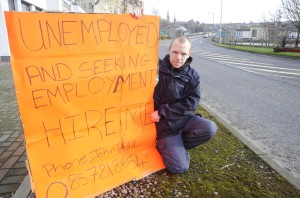 UNEMPLOYED
AND SEEKING
EMPLOYMENT
HIRE ME
Phone